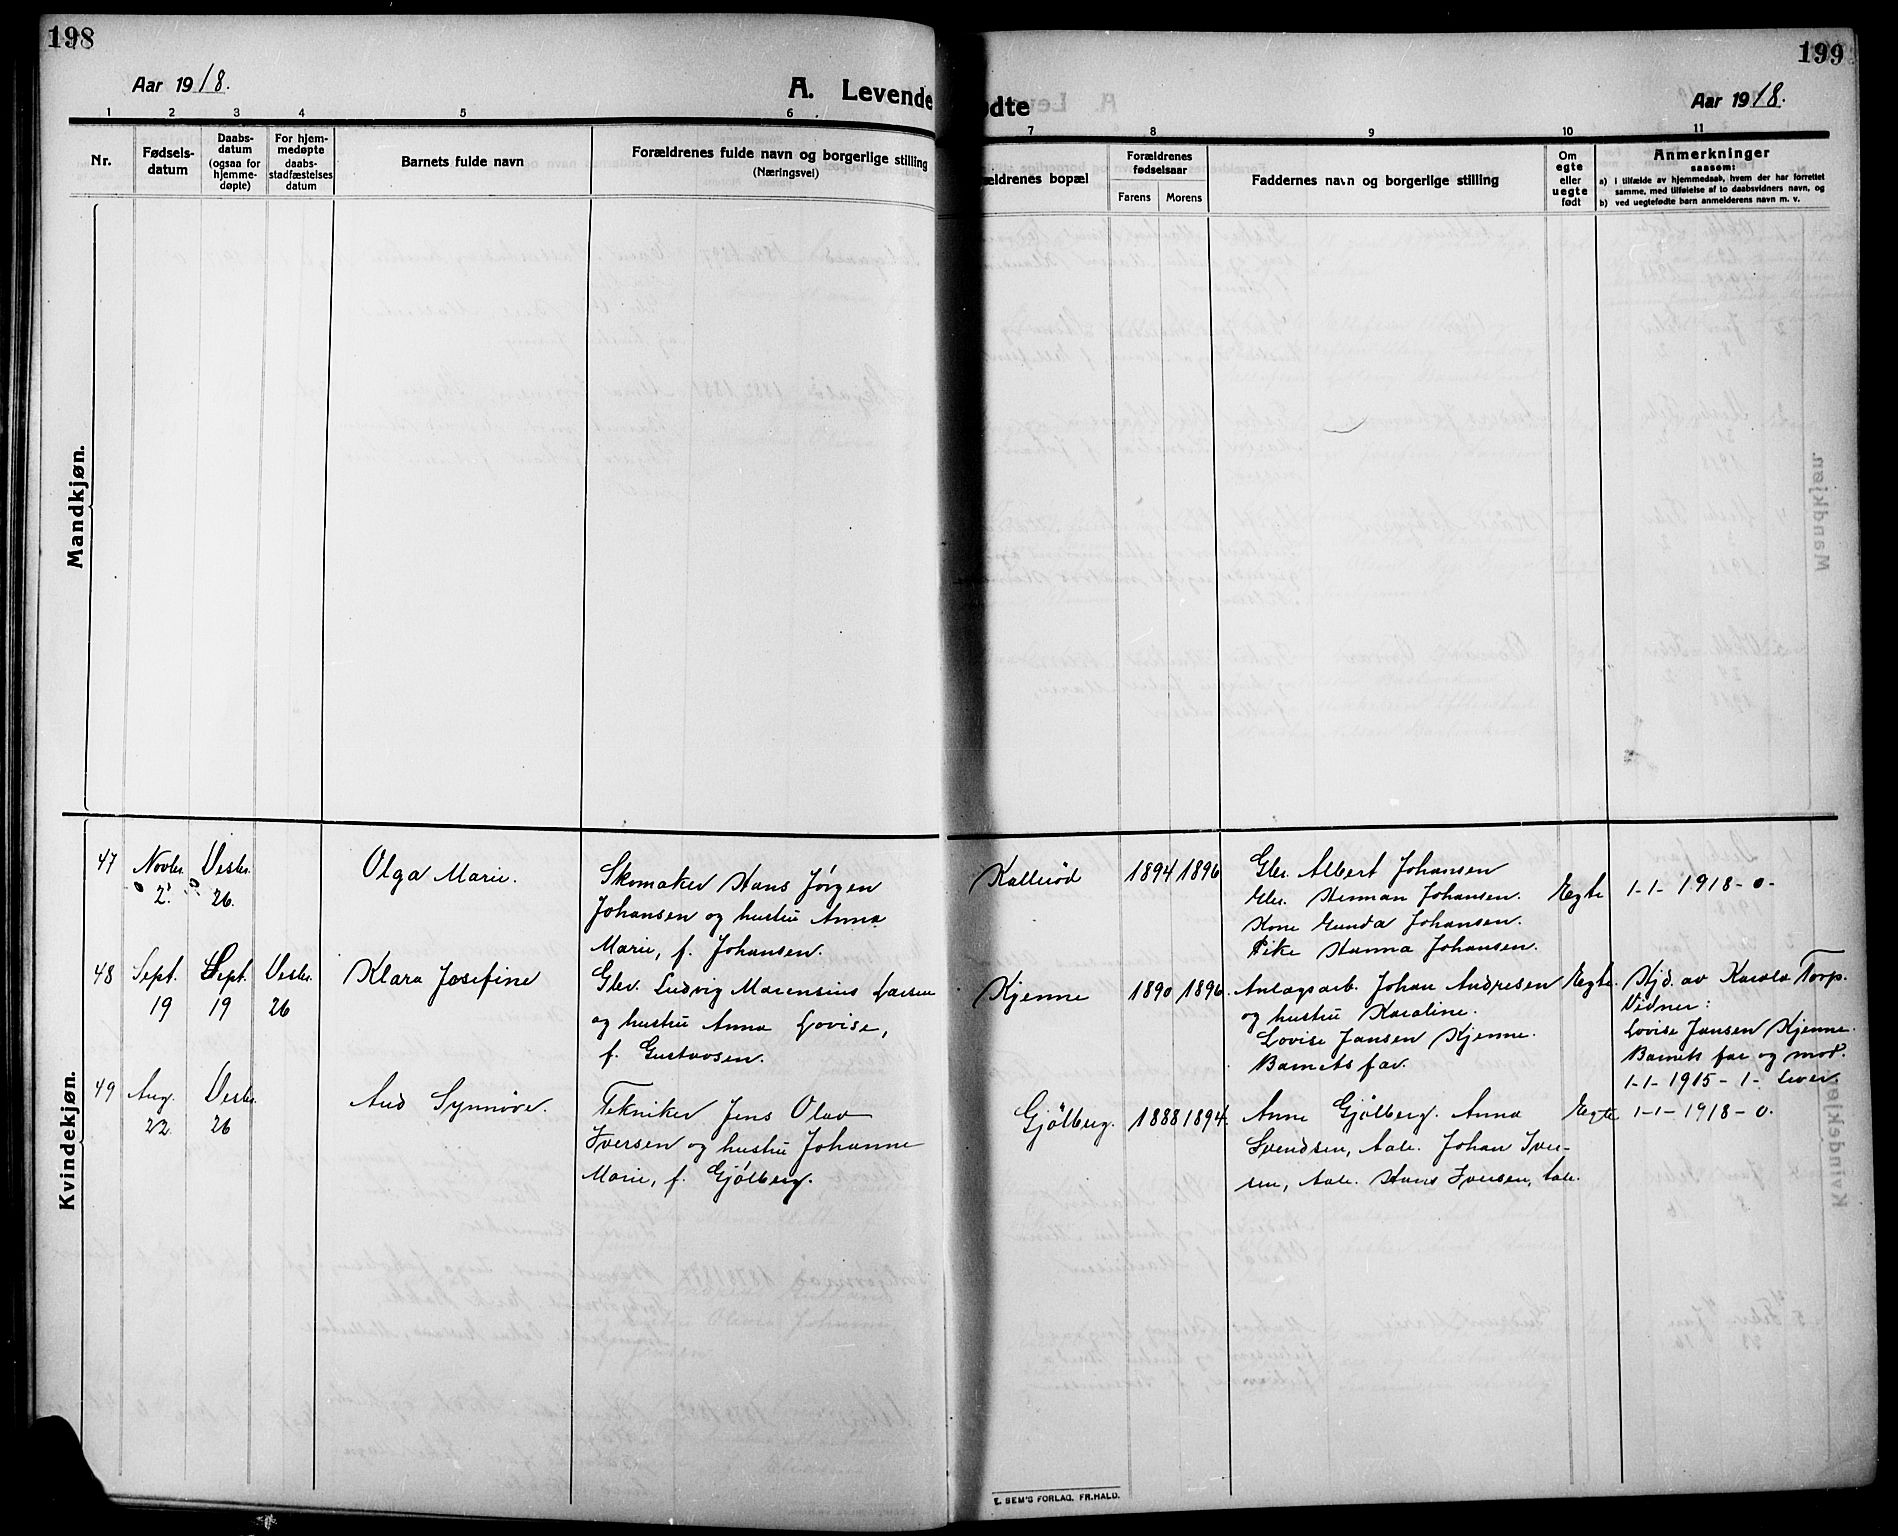 198
Aar 1918.
A. Levende
1 2 3 4 5 6
Nr.
Fødsels-
datum
Daabs-
datum
(ogsaa for
hjemme-
døpte)
For hjem-
medøpte
daabs-
stadfæstelses
datum
Barnets fulde navn
Forældrenes fulde navn og borgerlige stilling
(Næringsvei)
Mandkjøn.
Kvindekjøn.
47
Novbr.
2.
26.
Olga Marie.
Skomaker Hans Jörgen
Johansen og hustru Anna
Marie, f. Johansen.
48
Sept.
19
Sept.
19
26
Klara Josefine
Glev. Ludvig Marensius Larsen
og hustru Anna Lovise,
f. Gustavsen.
49
Aug.
22.
26
Aud Synnöve.
Tekniker Jens Olav
Iversen og hustru Johanne
Marie, f. Gjölberg.
199
Aar 1918.
ødte
7 8 9 10 11
ældrenes bopæl
Forældrenes
fødselsaar
Farens Morens
Faddernes navn og borgerlige stilling
Om
egte
eller
uegte
født
Anmerkninger
saasom:
a) i tilfælde av hjemmedaab, hvem der har forrettet
samme, med tilføielse af to daabsvidners navn, og
b) ved uegtefødte barn anmelderens navn m. v.
Kalleröd
1894 1896
Glev. Albert Johansen
Glev. Herman Johansen.
Kone Gunda Johansen.
Pike Hanna Johansen.
Egte
1-1-1918-0-
Kjenne
1890 1896.
Anlægsarb. Johan Andresen
og hustru Karoline.
Lovise Jansen Kjenne.
Barnets far.
Egte.
Hjd. av Karola Torp.
Vidner:
Lovise Jansen Kjenne.
Barnets far og mor.
1-1-1915-1- Lever
Gjölberg.
1888 1894.
Anne Gjölberg. Anna
Svendsen, Aale. Johan Iver-
sen, Aale. Hans Iversen, Aale.
Egte
1-1-1918-0.
E. SEM'S FORLAG. FR.HALD.